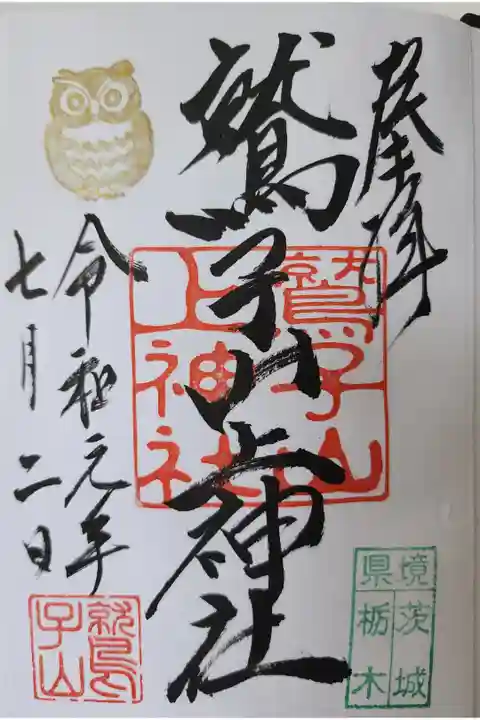 奉拝
鷲子山上神社
令和元年
七月二日
鷲子山
上神社
鷲子山
県境
茨城
栃木